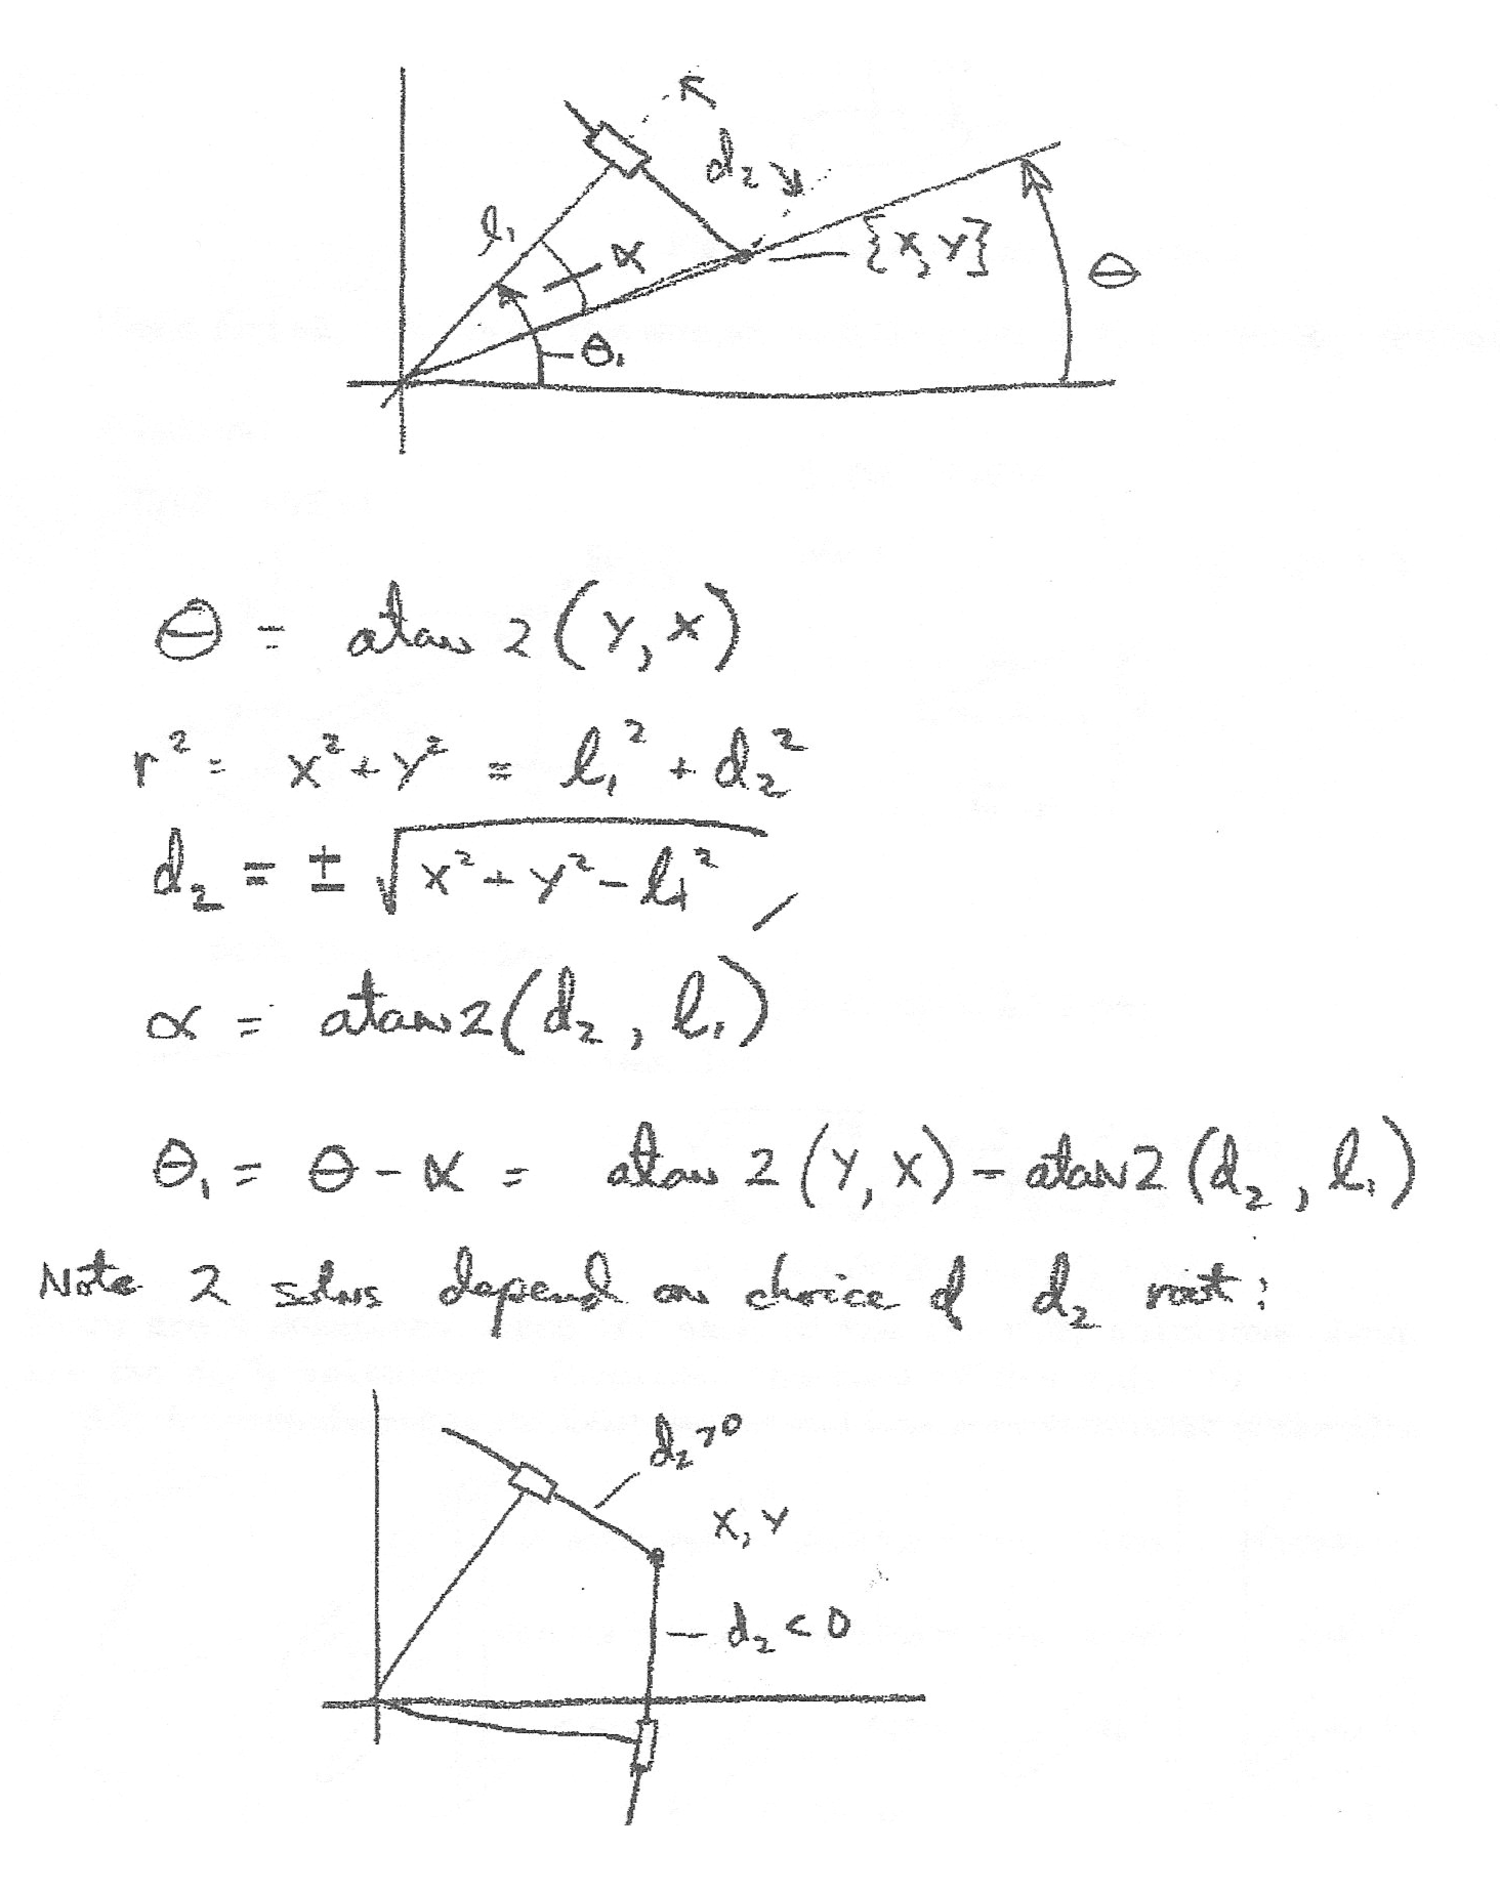 d₂
l₁
α
{X, Y}
θ
θ₁
θ = atan 2 (Y, X)
r² = X² + Y² = l₁² + d₂²
d₂ = ± √(X² + Y² - l₁²)
α = atan2(d₂, l₁)
θ₁ = θ - α = atan 2 (Y, X) - atan2 (d₂, l₁)
Note 2 solns depend on choice of d₂ root:
d₂ > 0
X, Y
d₂ < 0